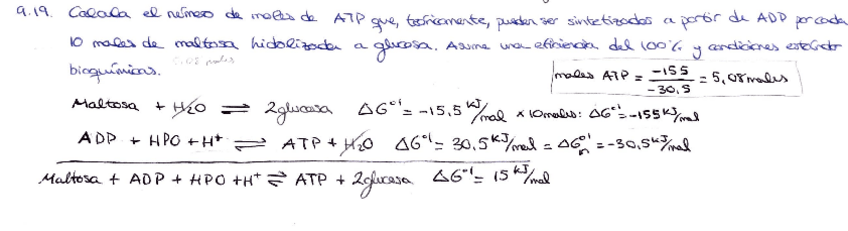 9.19. Calcula el número de moles de ATP que, teóricamente, pueden ser sintetizados a partir de ADP por cada
10 moles de maltosa hidolizada a glucosa. Asume una eficiencia del 100% y condiciones estándar
bioquímicas. 5,08 moles
moles ATP = -155 / -30,5 = 5,08 moles
Maltosa + H2O ⇌ 2glucosa ΔG°' = -15,5 kJ/mol x 10 moles: ΔG°' = -155 kJ/mol
ADP + HPO + H+ ⇌ ATP + H2O ΔG°' = 30,5 kJ/mol = ΔG°' = -30,5 kJ/mol
Maltosa + ADP + HPO + H+ ⇌ ATP + 2glucosa ΔG°' = 15 kJ/mol